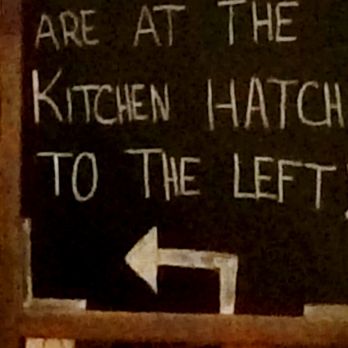 ARE AT THE
KITCHEN HATCH
TO THE LEFT!